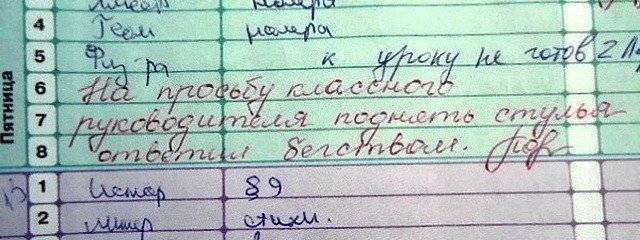 номера
4 Геом номера
5 Физ-ра к уроку не готов 2
6 На просьбу классного
7 руководителя поднять стулья
8 ответил бегством.
Пятница
1 Истор §9
2 Литер стихи.